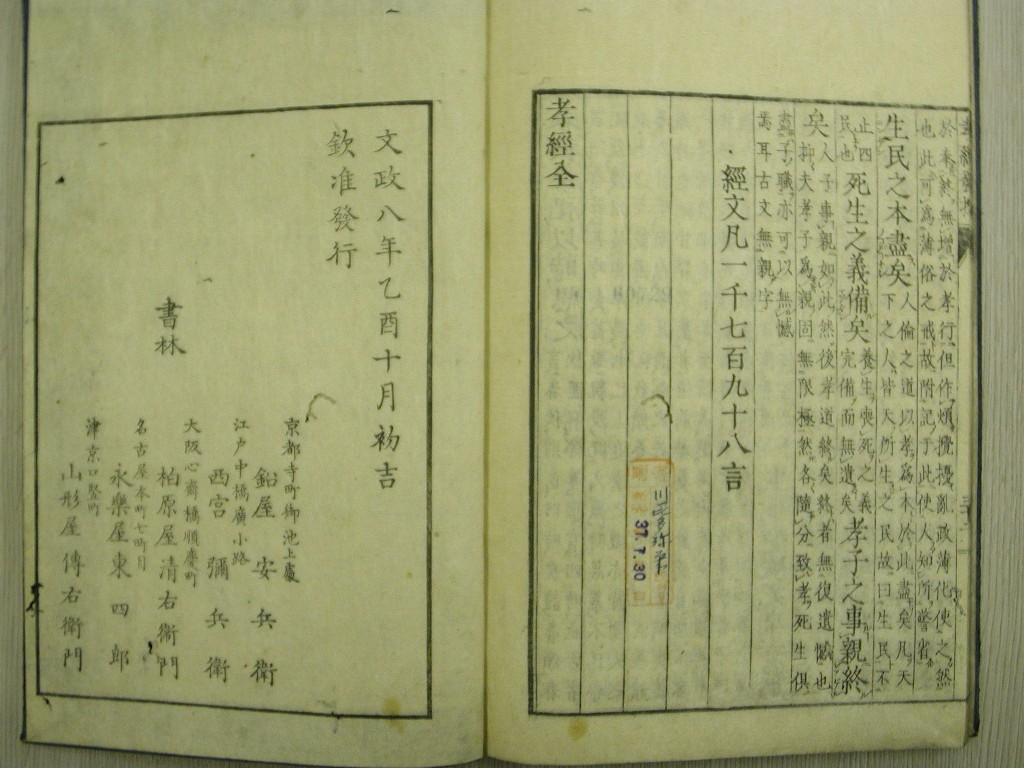 於奉然無增於孝行但作煩攪擾亂政薄化使之然
也此可爲薄俗之戒故附記于此使人知所警省
生民之本盡矣人倫之道以孝爲本於此盡矣凡天下之人皆天所生之民故曰生民不
止四民也死生之義備矣養生喪死之義完備而無遺矣孝子之事親終
矣人子事親如此然後孝道終矣終者無復遺憾也抑夫孝子爲親固無限極然各隨分致孝死生俱
盡子職亦可以無憾焉耳古文無親字
經文凡一千七百九十八言
37.7.30
孝經全
文政八年乙酉十月初吉
欽准發行
書林
京都寺町御池上處
鉛屋安兵衛
江戸中橋廣小路
西宮彌兵衛
大阪心齋橋順慶町
柏原屋清右衛門
名古屋本町七町目
永樂屋東四郎
津京口竪町
山形屋傳右衛門